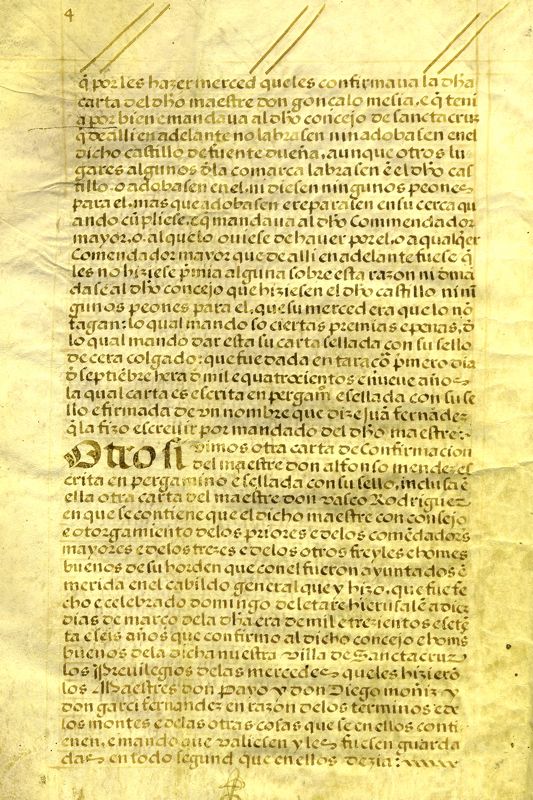 4
q̃ por les hazer merced queles confirmaua la dha
carta del dho maestre don gonçalo mesia, e q̃ teni
q̃ por bien e mandaua al dho concejo de sanctacruz
q̃ de alli en adelante no labrasen nin adobasen enel
dicho castillo de fuente dueña, aunque otros lu
gares algunos d̃la comarca labrasen ẽ el dho cas
tillo. o adobasen en el, ni diesen ningunos peones
para el, mas que adobasen e reparasen en su cerca qu
ando cũpliese, e q̃ mandaua al dho Commendador
mayor. o. al que lo ouiese de hauer por el. o a qualq̃er
Comendador mayor que de alli en adelante fuese q̃
les no hiziese p̃mia alguna sobre esta razon ni dmã
dase al dho concejo que hiziesen el dho castillo ni nĩ
gunos peones para el, que su merced era que lo nõ
fagan: lo qual mando so ciertas premias e penas, d̃
lo qual mando dar esta su carta sellada con su sello
de cera colgado: que fue dada en taracõ p̃mero dia
d̃ septiẽbre hera d̃ mil e quatrocientos e nueue años
la qual carta es escrita en pergamỹ e sellada con su se
llo e firmada de vn nombre que dize juã fernãdez
q̃ la fizo escreuir por mandado del dho maestre:~
Otro si vimos otra carta de confirmacion
del maestre don alfonso mendez es
crita en pergamino e sellada con su sello, inclusa ẽ
ella otra carta del maestre don vasco Rodriguez
en que se contiene que el dicho maestre con consejo
e otorgamiento delos priores e delos comẽdadores
mayores e delos trezes e delos otros freyles e homes
buenos de su horden que con el fueron ayuntados ẽ
merida en el cabildo general que y hizo, que fue fe
cho e celebrado domingo de letare hierusalẽ a diez
dias de março dela dha era de mil e trezientos e setẽ
ta e seis años que confirmo al dicho concejo e homs
buenos dela dicha nuestra villa de Sanctacruz
los Preuilegios delas mercedes queles hizierõ
los Maestres don Payo y don Diego moñiz y
don garci fernandez en razon delos terminos e de
los montes e delas otras cosas que se en ellos conti
enen, e mando que valiesen y les fuesen guarda
das en todo segund que en ellos dezia: